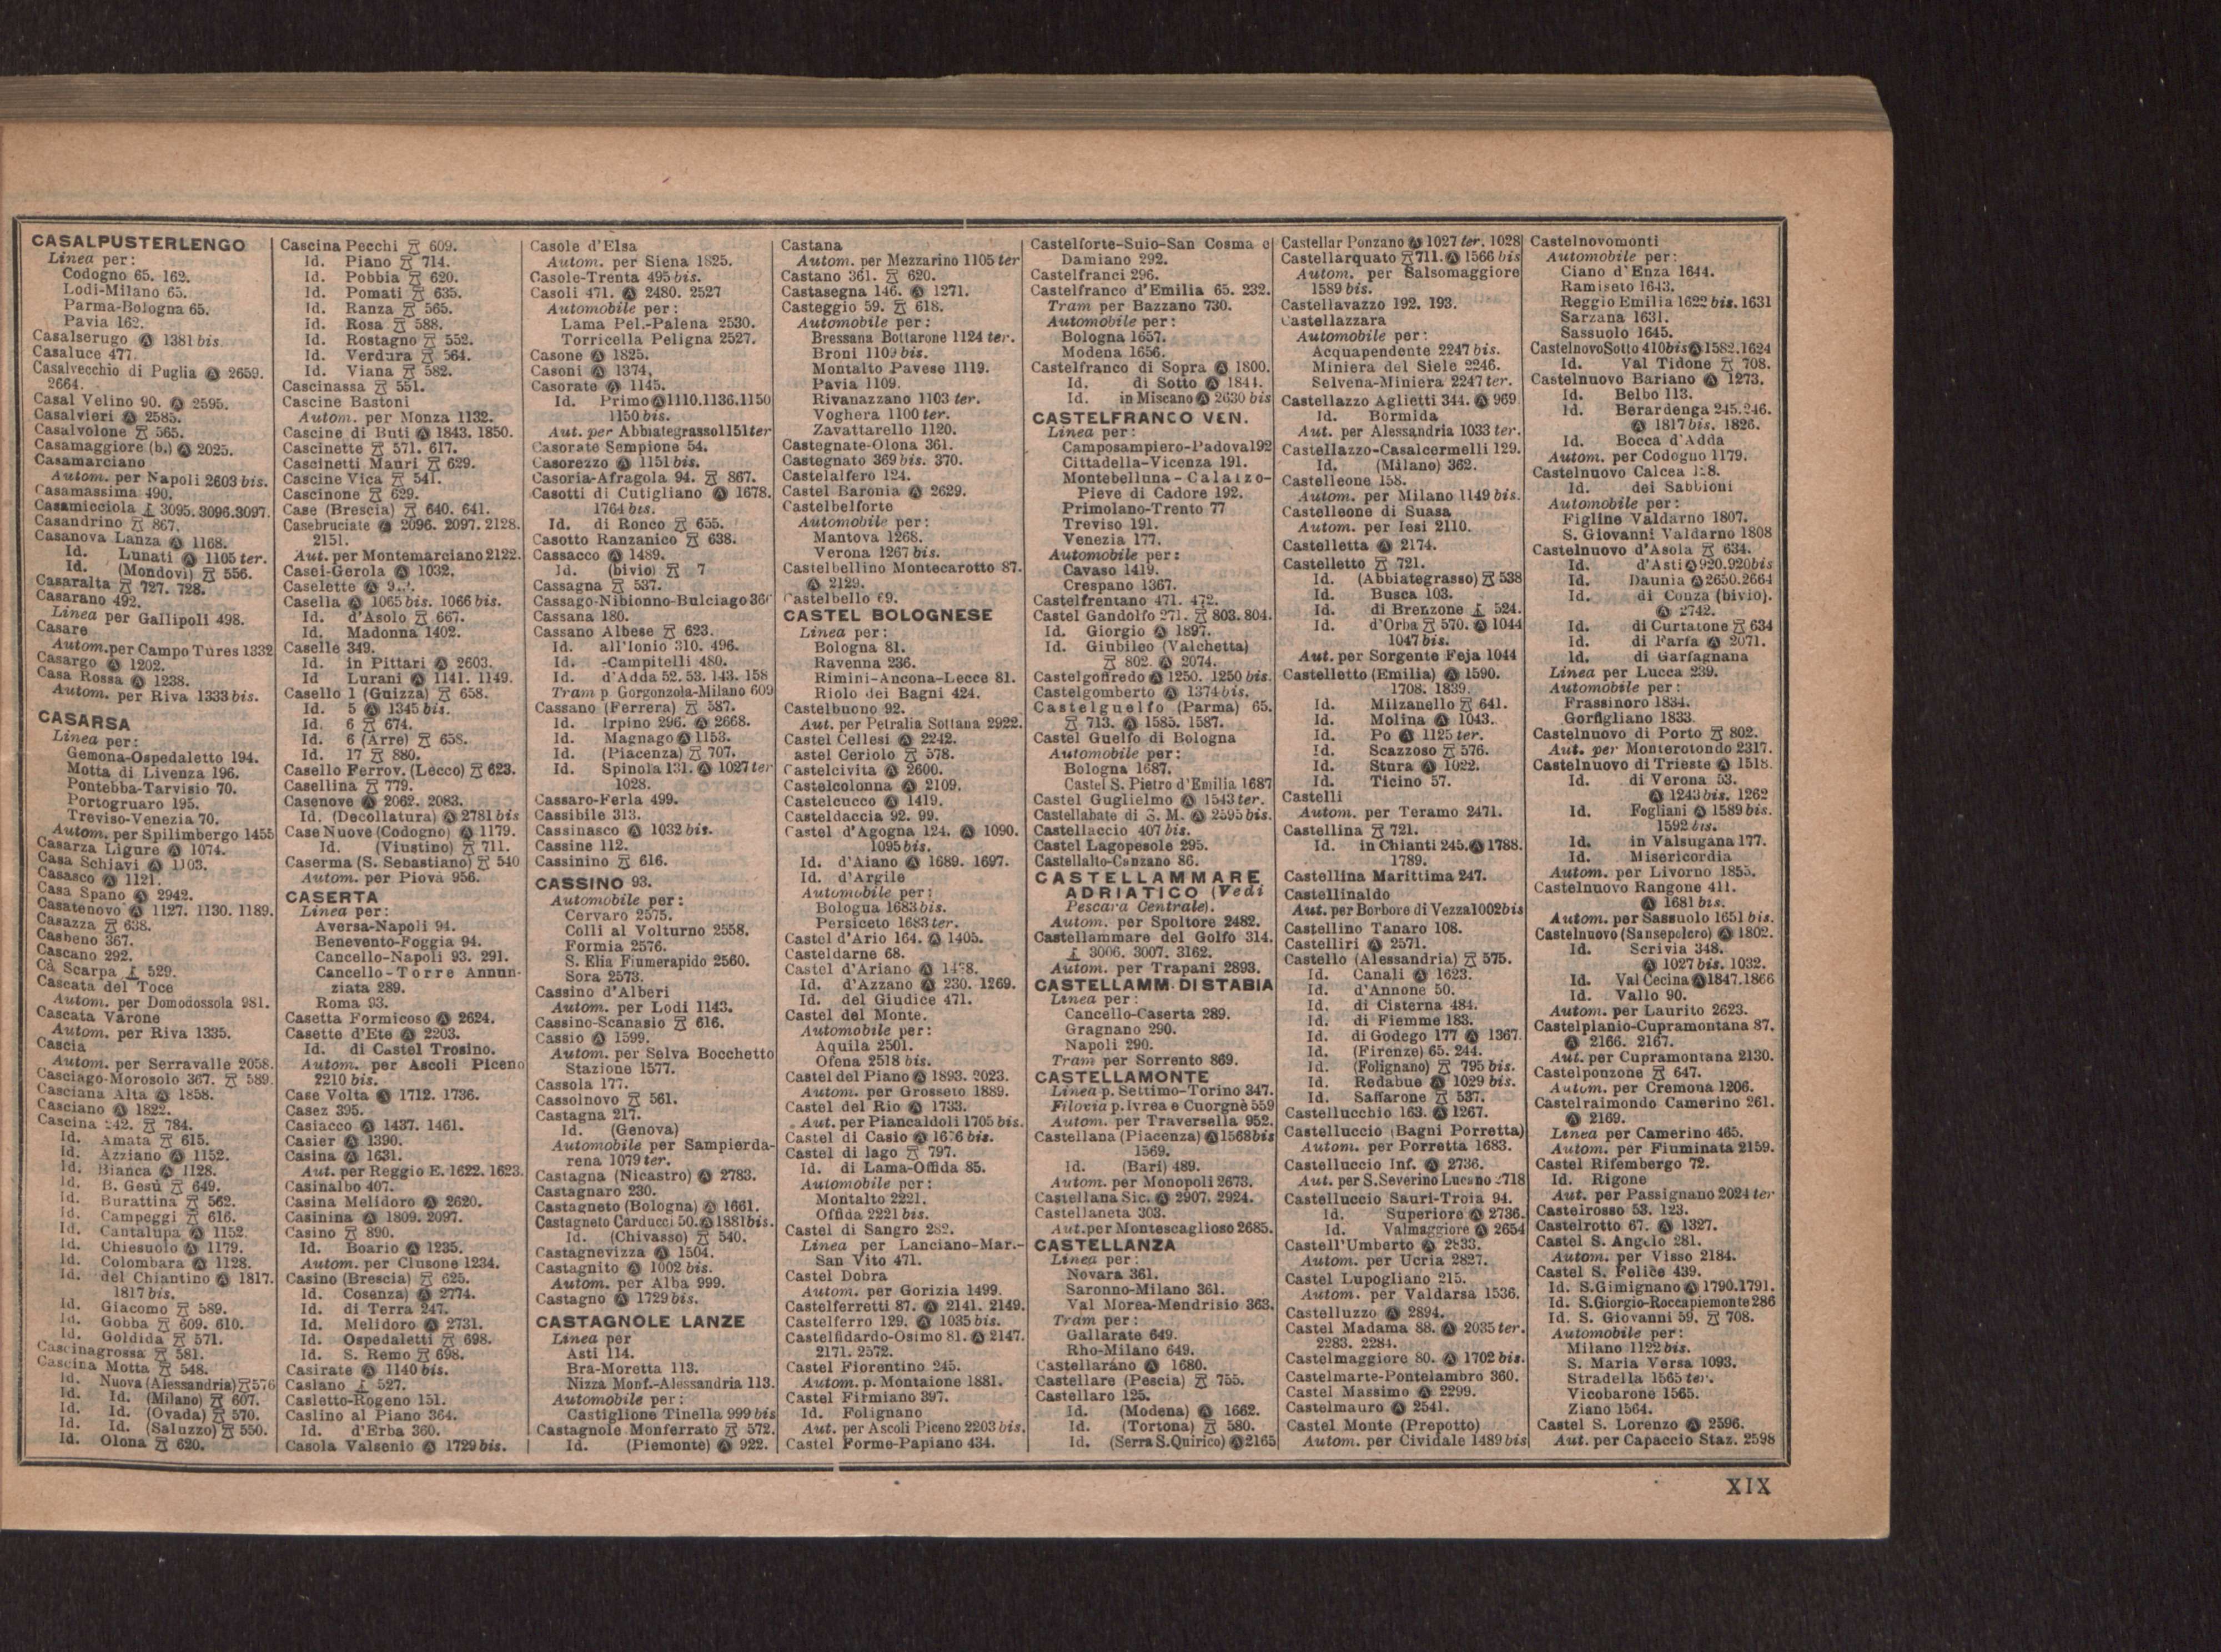 CASALPUSTERLENGO
Linea per:
Codogno 65. 162.
Lodi-Milano 65.
Parma-Bologna 65.
Pavia 162.
Casalserugo Ⓐ 1381 bis.
Casaluce 477.
Casalvecchio di Puglia Ⓐ 2659.
2664.
Casal Velino 90. Ⓐ 2595.
Casalvieri Ⓐ 2585.
Casalvolone 565.
Casamaggiore (b.) Ⓐ 2025.
Casamarciano
Autom. per Napoli 2603 bis.
Casamassima 490.
Casamicciola 3095. 3096. 3097.
Casandrino 867.
Casanova Lanza Ⓐ 1168.
Id. Lunati Ⓐ 1105 ter.
Id. (Mondovi) 556.
Casaralta 727. 728.
Casarano 492.
Linea per Gallipoli 498.
Casare
Autom. per Campo Tures 1332
Casargo Ⓐ 1202.
Casa Rossa Ⓐ 1238.
Autom. per Riva 1333 bis.
CASARSA
Linea per:
Gemona-Ospedaletto 194.
Motta di Livenza 196.
Pontebba-Tarvisio 70.
Portogruaro 195.
Treviso-Venezia 70.
Autom. per Spilimbergo 1455
Casarza Ligure Ⓐ 1074.
Casa Schiavi Ⓐ 1103.
Casasco Ⓐ 1121.
Casa Spano Ⓐ 2942.
Casatenovo Ⓐ 1127. 1130. 1189.
Casazza 638.
Casbeno 367.
Cascano 292.
Cà Scarpa 529.
Cascata del Toce
Autom. per Domodossola 981.
Cascata Varone
Autom. per Riva 1335.
Cascia
Autom. per Serravalle 2058.
Casciago-Morosolo 367. 589.
Casciana Alta Ⓐ 1858.
Casciano Ⓐ 1822.
Cascina 784.
Id. Amata 615.
Id. Azziano Ⓐ 1152.
Id. Bianca Ⓐ 1128.
Id. B. Gesù 649.
Id. Burattina 562.
Id. Campeggi 616.
Id. Cantalupa Ⓐ 1152.
Id. Chiesuolo Ⓐ 1179.
Id. Colombara Ⓐ 1128.
Id. del Chiantino Ⓐ 1817.
1817 bis.
Id. Giacomo 589.
Id. Gobba 609. 610.
Id. Goldida 571.
Cascinagrossa 581.
Cascina Motta 548.
Id. Nuova (Alessandria) 576
Id. Id. (Milano) 607.
Id. Id. (Ovada) 570.
Id. Id. (Saluzzo) 550.
Id. Olona 620.
Cascina Pecchi 609.
Id. Piano 714.
Id. Pobbia 620.
Id. Pomati 635.
Id. Ranza 565.
Id. Rosa 588.
Id. Rostagno 552.
Id. Verdura 564.
Id. Viana 582.
Cascinassa 551.
Cascine Bastoni
Autom. per Monza 1132.
Cascine di Buti Ⓐ 1843. 1850.
Cascinette 571. 617.
Cascinetti Mauri 629.
Cascine Vica 541.
Cascinone 629.
Case (Brescia) 640. 641.
Casebruciate Ⓐ 2096. 2097. 2128.
2151.
Aut. per Montemarciano 2122.
Casei-Gerola Ⓐ 1032.
Caselette Ⓐ
Casella Ⓐ 1065 bis. 1066 bis.
Id. d'Asolo 667.
Id. Madonna 1402.
Caselle 349.
Id. in Pittari Ⓐ 2603.
Id Lurani Ⓐ 1141. 1149.
Casello 1 (Guizza) 658.
Id. 5 Ⓐ 1345 bis.
Id. 6 674.
Id. 6 (Arre) 658.
Id. 17 880.
Casello Ferrov. (Lecco) 623.
Casellina 779.
Casenove Ⓐ 2062. 2083.
Id. (Decollatura) Ⓐ 2781 bis
Case Nuove (Codogno) Ⓐ 1179.
Id. (Viustino) 711.
Caserma (S. Sebastiano) 540
Autom. per Piovà 956.
CASERTA
Linea per:
Aversa-Napoli 94.
Benevento-Foggia 94.
Cancello-Napoli 93. 291.
Cancello-Torre Annun-
ziata 289.
Roma 93.
Casetta Formicoso Ⓐ 2624.
Casette d'Ete Ⓐ 2203.
Id. di Castel Trosino.
Autom. per Ascoli Piceno
2210 bis.
Case Volta Ⓐ 1712. 1736.
Casez 395.
Casiacco Ⓐ 1437. 1461.
Casier Ⓐ 1390.
Casina Ⓐ 1631.
Aut. per Reggio E. 1622. 1623.
Casinalbo 407.
Casina Melidoro Ⓐ 2620.
Casinina Ⓐ 1809. 2097.
Casino 890.
Id. Boario Ⓐ 1235.
Autom. per Clusone 1234.
Casino (Brescia) 625.
Id. Cosenza) Ⓐ 2774.
Id. di Terra 247.
Id. Melidoro Ⓐ 2731.
Id. Ospedaletti 698.
Id. S. Remo 698.
Casirate Ⓐ 1140 bis.
Caslano 527.
Casletto-Rogeno 151.
Caslino al Piano 364.
Id. d'Erba 360.
Casola Valsenio Ⓐ 1729 bis.
Casole d'Elsa
Autom. per Siena 1825.
Casole-Trenta 495 bis.
Casoli 471. Ⓐ 2480. 2527
Automobile per:
Lama Pel.-Palena 2530.
Torricella Peligna 2527.
Casone Ⓐ 1825.
Casoni Ⓐ 1374,
Casorate Ⓐ 1145.
Id. Primo Ⓐ 1110. 1136. 1150
1150 bis.
Aut. per Abbiategrasso 1151 ter
Casorate Sempione 54.
Casorezzo Ⓐ 1151 bis.
Casoria-Afragola 94. 867.
Casotti di Cutigliano Ⓐ 1678.
1764 bis.
Id. di Ronco 655.
Casotto Ranzanico 638.
Cassacco Ⓐ 1489.
Id. (bivio) 7
Cassagna 537.
Cassago-Nibionno-Bulciago
Cassana 180.
Cassano Albese 623.
Id. all'Ionio 310. 496.
Id. -Campitelli 480.
Id. d'Adda 52. 53. 143. 158
Tram p. Gorgonzola-Milano 609
Cassano (Ferrera) 587.
Id. Irpino 296. Ⓐ 2668.
Id. Magnago Ⓐ 1153.
Id. (Piacenza) 707.
Id. Spinola 131. Ⓐ 1027 ter
1028.
Cassaro-Ferla 499.
Cassibile 313.
Cassinasco Ⓐ 1032 bis.
Cassine 112.
Cassinino 616.
CASSINO 93.
Automobile per:
Cervaro 2575.
Colli al Volturno 2558.
Formia 2576.
S. Elia Fiumerapido 2560.
Sora 2573.
Cassino d'Alberi
Autom. per Lodi 1143.
Cassino-Scanasio 616.
Cassio Ⓐ 1599.
Autom. per Selva Bocchetto
Stazione 1577.
Cassola 177.
Cassolnovo 561.
Castagna 217.
Id. (Genova)
Automobile per Sampierda-
rena 1079 ter.
Castagna (Nicastro) Ⓐ 2783.
Castagnaro 230.
Castagneto (Bologna) Ⓐ 1661.
Castagneto Carducci 50. Ⓐ 1881 bis.
Id. (Chivasso) 540.
Castagnevizza Ⓐ 1504.
Castagnito Ⓐ 1002 bis.
Autom. per Alba 999.
Castagno Ⓐ 1729 bis.
CASTAGNOLE LANZE
Linea per
Asti 114.
Bra-Moretta 113.
Nizza Monf.-Alessandria 113.
Automobile per:
Castiglione Tinella 999 bis
Castagnole Monferrato 572.
Id. (Piemonte) Ⓐ 922.
Castana
Autom. per Mezzarino 1105 ter
Castano 361. 620.
Castasegna 146. Ⓐ 1271.
Casteggio 59. 618.
Automobile per:
Bressana Bottarone 1124 ter.
Broni 1109 bis.
Montalto Pavese 1119.
Pavia 1109.
Rivanazzano 1103 ter.
Voghera 1100 ter.
Zavattarello 1120.
Castegnate-Olona 361.
Castegnato 369 bis. 370.
Castelalfero 124.
Castel Baronia Ⓐ 2629.
Castelbelforte
Automobile per:
Mantova 1268.
Verona 1267 bis.
Castelbellino Montecarotto 87.
Ⓐ 2129.
Castelbello 69.
CASTEL BOLOGNESE
Linea per:
Bologna 81.
Ravenna 236.
Rimini-Ancona-Lecce 81.
Riolo dei Bagni 424.
Castelbuono 92.
Aut. per Petralia Sottana 2922.
Castel Cellesi Ⓐ 2242.
astel Ceriolo 578.
Castelcivita Ⓐ 2600.
Castelcolonna Ⓐ 2109.
Castelcucco Ⓐ 1419.
Casteldaccia 92. 99.
Castel d'Agogna 124. Ⓐ 1090.
1095 bis.
Id. d'Aiano Ⓐ 1689. 1697.
Id. d'Argile
Automobile per:
Bologua 1683 bis.
Persiceto 1683 ter.
Castel d'Ario 164. Ⓐ 1405.
Casteldarne 68.
Castel d'Ariano Ⓐ
Id. d'Azzano Ⓐ 230. 1269.
Id. del Giudice 471.
Castel del Monte.
Automobile per:
Aquila 2501.
Ofena 2518 bis.
Castel del Piano Ⓐ 1893. 2023.
Autom. per Grosseto 1889.
Castel del Rio Ⓐ 1733.
Aut. per Piancaldoli 1705 bis.
Castel di Casio Ⓐ 1676 bis.
Castel di lago 797.
Id. di Lama-Offida 85.
Automobile per:
Montalto 2221.
Offida 2221 bis.
Castel di Sangro 282.
Linea per Lanciano-Mar.-
San Vito 471.
Castel Dobra
Autom. per Gorizia 1499.
Castelferretti 87. Ⓐ 2141. 2149.
Castelferro 129. Ⓐ 1035 bis.
Castelfidardo-Osimo 81. Ⓐ 2147.
2171. 2572.
Castel Fiorentino 245.
Autom. p. Montaione 1881.
Castel Firmiano 397.
Id. Folignano
Aut. per Ascoli Piceno 2203 bis.
Castel Forme-Papiano 434.
Castelforte-Suio-San Cosma e
Damiano 292.
Castelfranci 296.
Castelfranco d'Emilia 65. 232.
Tram per Bazzano 730.
Automobile per:
Bologna 1657.
Modena 1656.
Castelfranco di Sopra Ⓐ 1800.
Id. di Sotto Ⓐ 1844.
Id. in Miscano Ⓐ 2630 bis
CASTELFRANCO VEN.
Linea per:
Camposampiero-Padova 192
Cittadella-Vicenza 191.
Montebelluna-Calalzo-
Pieve di Cadore 192.
Primolano-Trento 77
Treviso 191.
Venezia 177.
Automobile per:
Cavaso 1419.
Crespano 1367.
Castelfrentano 471. 472.
Castel Gandolfo 271. 803. 804.
Id. Giorgio Ⓐ 1897.
Id. Giubileo (Valchetta)
802. Ⓐ 2074.
Castelgoffredo Ⓐ 1250. 1250 bis.
Castelgomberto Ⓐ 1374 bis.
Castelguelfo (Parma) 65.
713. Ⓐ 1585. 1587.
Castel Guelfo di Bologna
Automobile per:
Bologna 1687.
Castel S. Pietro d'Emilia 1687
Castel Guglielmo Ⓐ 1543 ter.
Castellabate di S. M. Ⓐ 2595 bis.
Castellaccio 407 bis.
Castel Lagopesole 295.
Castellalto-Canzano 86.
CASTELLAMMARE
ADRIATICO (Vedi
Pescara Centrale).
Autom. per Spoltore 2482.
Castellammare del Golfo 314.
3006. 3007. 3162.
Autom. per Trapani 2893.
CASTELLAMM. DI STABIA
Linea per:
Cancello-Caserta 289.
Gragnano 290.
Napoli 290.
Tram per Sorrento 869.
CASTELLAMONTE
Linea p. Settimo-Torino 347.
Filovia p. Ivrea e Cuorgnè 559
Autom. per Traversella 952.
Castellana (Piacenza) Ⓐ 1568 bis
1569.
Id. (Bari) 489.
Autom. per Monopoli 2673.
Castellana Sic. Ⓐ 2907. 2924.
Castellaneta 303.
Aut. per Montescaglioso 2685.
CASTELLANZA
Linea per:
Novara 361.
Saronno-Milano 361.
Val Morea-Mendrisio 363.
Tram per:
Gallarate 649.
Rho-Milano 649.
Castellaráno Ⓐ 1680.
Castellare (Pescia) 755.
Castellaro 125.
Id. (Modena) Ⓐ 1662.
Id. (Tortona) 580.
Id. (Serra S. Quirico) Ⓐ 2165
Castellar Ponzano Ⓐ 1027 ter. 1028
Castellarquato 711. Ⓐ 1566 bis
Autom. per Salsomaggiore
1589 bis.
Castellavazzo 192. 193.
Castellazzara
Automobile per:
Acquapendente 2247 bis.
Miniera del Siele 2246.
Selvena-Miniera 2247 ter.
Castellazzo Aglietti 344. Ⓐ 969
Id. Bormida
Aut. per Alessandria 1033 ter.
Castellazzo-Casalcermelli 129.
Id. (Milano) 362.
Castelleone 158.
Autom. per Milano 1149 bis.
Castelleone di Suasa
Autom. per Iesi 2110.
Castelletta Ⓐ 2174.
Castelletto 721.
Id. (Abbiategrasso) 538
Id. Busca 103.
Id. di Brenzone 524.
Id. d'Orba 570. Ⓐ 1044
1047 bis.
Aut. per Sorgente Feja 1044
Castelletto (Emilia) Ⓐ 1590.
1708. 1839.
Id. Milzanello 641.
Id. Molina Ⓐ 1043.
Id. Po Ⓐ 1125 ter.
Id. Scazzoso 576.
Id. Stura Ⓐ 1022.
Id. Ticino 57.
Castelli
Autom. per Teramo 2471.
Castellina 721.
Id. in Chianti 245. Ⓐ 1788.
1789.
Castellina Marittima 247.
Castellinaldo
Aut. per Borbore di Vezza 1002 bis
Castellino Tanaro 108.
Castelliri Ⓐ 2571.
Castello (Alessandria) 575.
Id. Canali Ⓐ 1623.
Id. d'Annone 50.
Id. di Cisterna 484.
Id. di Fiemme 183.
Id. di Godego 177 Ⓐ 1367.
Id. (Firenze) 65. 244.
Id. (Folignano) 795 bis.
Id. Redabue Ⓐ 1029 bis.
Id. Saffarone 537.
Castellucchio 163. Ⓐ 1267.
Castelluccio (Bagni Porretta)
Autom. per Porretta 1683.
Castelluccio Inf. Ⓐ 2736.
Aut. per S. Severino Lucano 2718
Castelluccio Sauri-Troia 94.
Id. Superiore Ⓐ 2736.
Id. Valmaggiore Ⓐ 2654
Castell'Umberto Ⓐ 2833.
Autom. per Ucria 2827.
Castel Lupogliano 215.
Autom. per Valdarsa 1536.
Castelluzzo Ⓐ 2894.
Castel Madama 88. Ⓐ 2035 ter.
2283. 2284.
Castelmaggiore 80. Ⓐ 1702 bis.
Castelmarte-Pontelambro 360.
Castel Massimo Ⓐ 2299.
Castelmauro Ⓐ 2541.
Castel Monte (Prepotto)
Autom. per Cividale 1489 bis
Castelnovomonti
Automobile per:
Ciano d'Enza 1644.
Ramiseto 1643.
Reggio Emilia 1622 bis. 1631
Sarzana 1631.
Sassuolo 1645.
Castelnovo Sotto 410 bis Ⓐ 1582. 1624
Id. Val Tidone 708.
Castelnuovo Bariano Ⓐ 1273.
Id. Belbo 113.
Id. Berardenga 245. 246.
Ⓐ 1817 bis. 1826.
Id. Bocca d'Adda
Autom. per Codogno 1179.
Castelnuovo Calcea 128.
Id. dei Sabbioni
Automobile per:
Figline Valdarno 1807.
S. Giovanni Valdarno 1808
Castelnuovo d'Asola 634.
Id. d'Asti Ⓐ 920. 920 bis
Id. Daunia Ⓐ 2650. 2664
Id. di Conza (bivio).
Ⓐ 2742.
Id. di Curtatone 634
Id. di Farfa Ⓐ 2071.
Id. di Garfagnana
Linea per Lucca 239.
Automobile per:
Frassinoro 1834.
Gorfigliano 1833.
Castelnuovo di Porto 802.
Aut. per Monterotondo 2317.
Castelnuovo di Trieste Ⓐ 1518.
Id. di Verona 53.
Ⓐ 1243 bis. 1262
Id. Fogliani Ⓐ 1589 bis.
1592 bis.
Id. in Valsugana 177.
Id. Misericordia
Autom. per Livorno 1855.
Castelnuovo Rangone 411.
Ⓐ 1681 bis.
Autom. per Sassuolo 1651 bis.
Castelnuovo (Sansepolcro) Ⓐ 1802.
Id. Scrivia 348.
Ⓐ 1027 bis. 1032.
Id. Val Cecina Ⓐ 1847. 1866
Id. Vallo 90.
Autom. per Laurito 2623.
Castelplanio-Cupramontana 87.
Ⓐ 2166. 2167.
Aut. per Cupramontana 2130.
Castelponzone 647.
Autom. per Cremona 1206.
Castelraimondo Camerino 261.
Ⓐ 2169.
Linea per Camerino 465.
Autom. per Fiuminata 2159.
Castel Rifembergo 72.
Id. Rigone
Aut. per Passignano 2024 ter
Castelrosso 53. 123.
Castelrotto 67. Ⓐ 1327.
Castel S. Angelo 281.
Autom. per Visso 2184.
Castel S. Felice 439.
Id. S. Gimignano Ⓐ 1790. 1791.
Id. S. Giorgio-Roccapiemonte 286
Id. S. Giovanni 59. 708.
Automobile per:
Milano 1122 bis.
S. Maria Versa 1093.
Stradella 1565 ter.
Vicobarone 1565.
Ziano 1564.
Castel S. Lorenzo Ⓐ 2596.
Aut. per Capaccio Staz. 2598
XIX